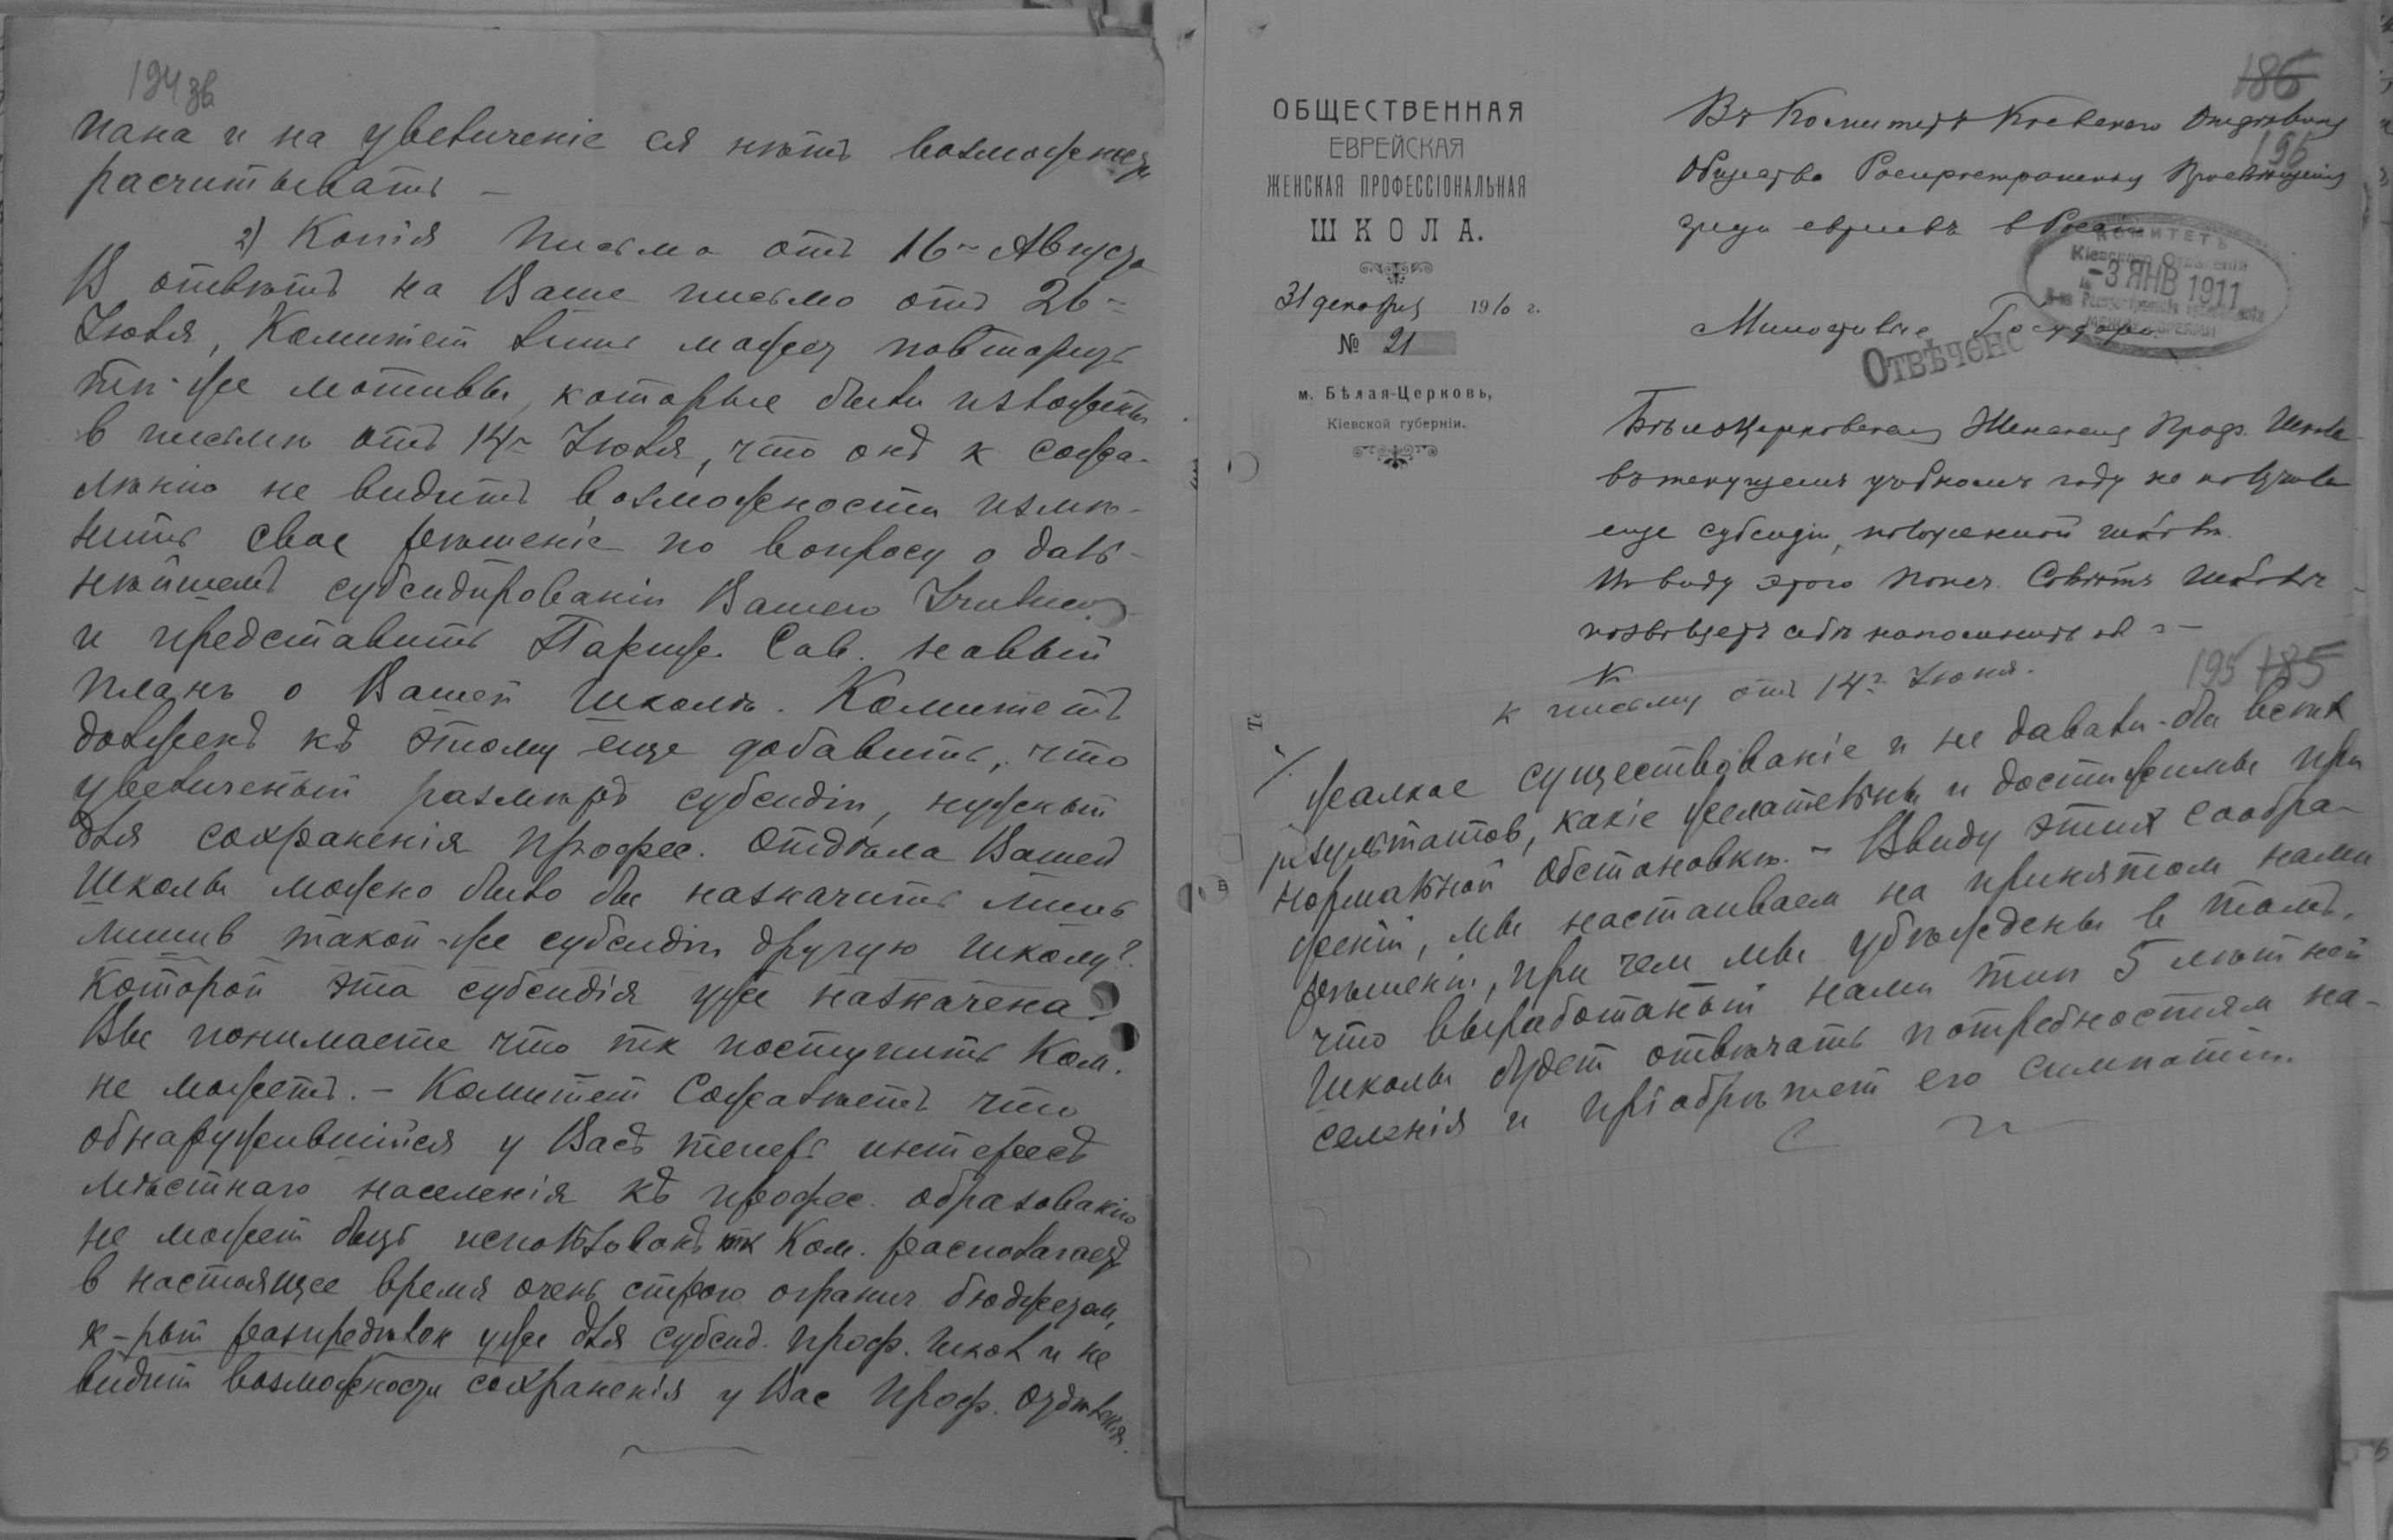 194 зв
пана и на увеличеніе ея нѣтъ возможности
расчитывать –
2) Копія письма отъ 16 – Августа
В отвѣтъ на Ваше письмо отъ 26 –
Іюля, Комитет лишь может повторить
тѣ-же мотивы, которые были изложены
в письмѣ отъ 14 – Іюля, что онъ к сожа-
лѣнію не видитъ возможности измѣ-
нить свое рѣшеніе по вопросу о даль-
нѣйшемъ субсидированіи Вашего Училища
и представить Париж. Сов. новый
планъ о Вашей школѣ. Комитетъ
долженъ къ этому еще добавить, что
увеличеный размѣръ субсидіи, нужный
для сохраненія професс. отдѣла Вашей
Школы можно было бы назначить лишь
лишив такой-же субсидіи другую школу?
которой эта субсидія уже назначена.
Вы понимаете что тк поступить Ком.
не можетъ. – Комитет Сожалѣетъ что
обнаружившійся у Васъ теперь интересъ
мѣстнаго населенія къ профес. образованію
не может быть использованъ тк Ком. располагает
в настоящее время очень строго огранич. бюджетом,
к-рый распредѣлен уже для субсид. проф. школ и не
видит возможности сохраненія у Вас Проф. отдѣленія.
ОБЩЕСТВЕННАЯ
ЕВРЕЙСКАЯ
ЖЕНСКАЯ ПРОФЕССІОНАЛЬНАЯ
ШКОЛА.
31 декабря 1910 г.
№ 21
м. Бѣлая-Церковь,
Кіевской губерніи.
186
195
Въ Комитетъ Кіевскаго Отдѣленія
Общества Распространенія Просвѣщенія
среди евреевъ в Россіи
КОМИТЕТЪ
Кіевскаго Отдѣленія
– 3 ЯНВ 1911
О-ва Распространенія просвѣщенія
МЕЖДУ ЕВРЕЯМИ
Милостивые Государи
ОТВѢЧЕНО
Бѣлоцерковская Женская Проф. Школа
въ текущемъ учебномъ году не получала
еще субсидіи, положенной школѣ.
Въ виду этого Попеч. Совѣтъ Школы
позволяетъ себѣ напомнить об
195 185
к письму отъ 14 – Іюня.
жалкое существованіе и не давали-бы всѣх
результатов, какіе желательны и достижимы при
нормальной обстановкѣ. – Ввиду этих сообра-
женій, мы настаиваем на принятом нами
рѣшеніи, при чем мы убѣждены в томъ,
что выработаный нами тип 5 лѣтней
Школы будет отвѣчать потребностям на-
селенія и пріобрѣтет его симпатіи.